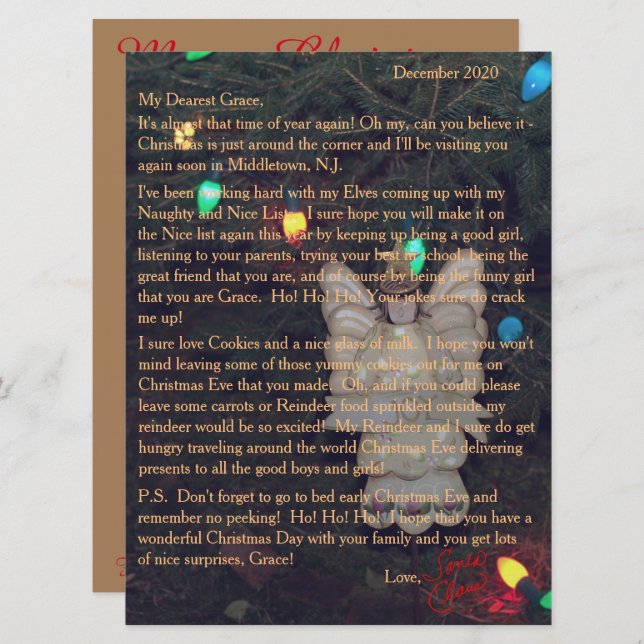 Merry Christmas
December 2020
My Dearest Grace,
It's almost that time of year again! Oh my, can you believe it -
Christmas is just around the corner and I'll be visiting you
again soon in Middletown, N.J.
I've been working hard with my Elves coming up with my
Naughty and Nice Lists. I sure hope you will make it on
the Nice list again this year by keeping up being a good girl,
listening to your parents, trying your best in school, being the
great friend that you are, and of course by being the funny girl
that you are Grace. Ho! Ho! Ho! Your jokes sure do crack
me up!
I sure love Cookies and a nice glass of milk. I hope you won't
mind leaving some of those yummy cookies out for me on
Christmas Eve that you made. Oh, and if you could please
leave some carrots or Reindeer food sprinkled outside my
reindeer would be so excited! My Reindeer and I sure do get
hungry traveling around the world Christmas Eve delivering
presents to all the good boys and girls!
P.S. Don't forget to go to bed early Christmas Eve and
remember no peeking! Ho! Ho! Ho! I hope that you have a
wonderful Christmas Day with your family and you get lots
of nice surprises, Grace!
Love, Santa
Claus